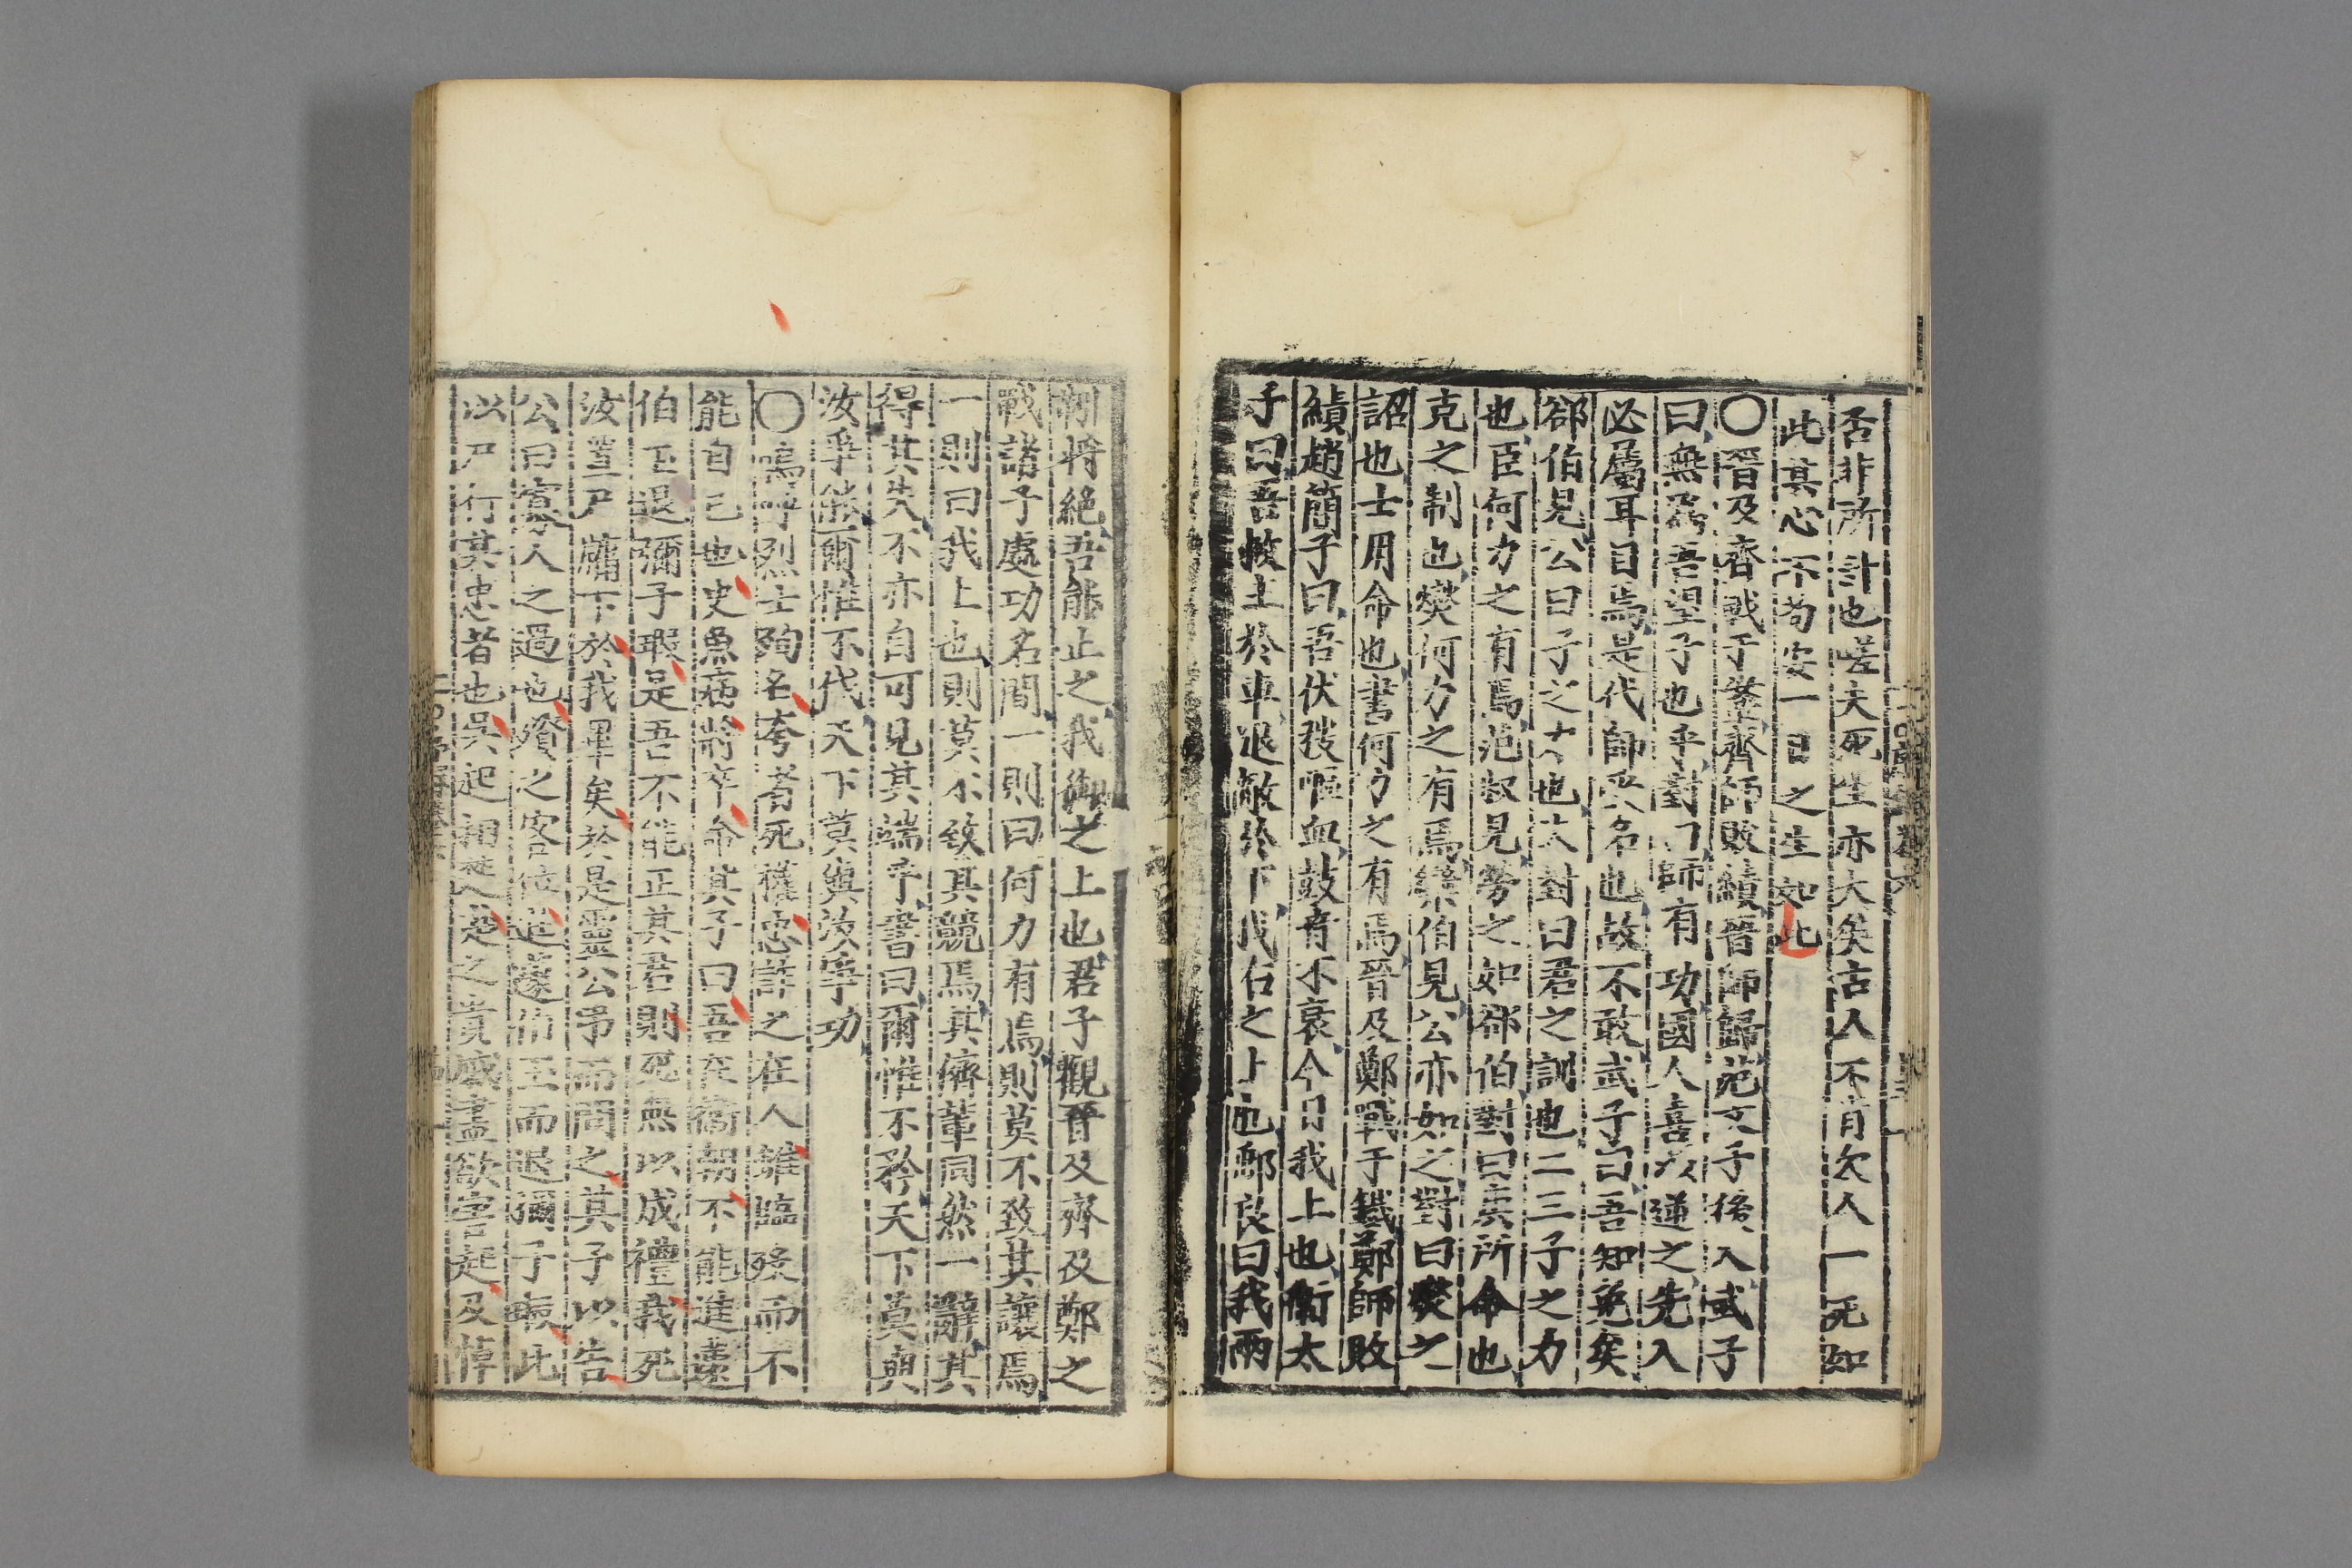 否非所計也嗟夫死生亦大矣古人不肯欠人一死如
此其心不苟安一日之生如此
〇晉及齊戰于鞌齊師敗績晉師歸范文子後入武子
曰無為吾望子也乎對曰師有功國人喜以逆之先入
必屬耳目焉是代帥受名也故不敢武子曰吾知免矣
郤伯見公曰子之力也夫對曰君之訓也二三子之力
也臣何力之有焉范叔見勞之如郤伯對曰庚所命也
克之制也燮何力之有焉欒伯見公亦如之對曰燮之
詔也士用命也書何力之有焉晉及鄭戰于鐵鄭師敗
績趙簡子曰吾伏弢嘔血鼓音不衰今日我上也衛太
子曰吾救主於車退敵於下我右之上也郵良曰我兩
靷將絕吾能止之我御之上也君子觀晉及齊及鄭之
戰諸子處功名間一則曰何力有焉則莫不致其讓焉
一則曰我上也則莫不致其競焉其儕輩同然一辭其
得其失不亦自可見其端乎書曰爾惟不矜天下莫與
汝爭能爾惟不伐天下莫與汝爭功
〇嗚呼烈士殉名夸者死權忠諍之在人雖臨殁而不
能自已也史魚病將卒命其子曰吾在衛朝不能進蘧
伯玉退彌子瑕是吾不能正其君則死無以成禮我死
汝置尸牖下於我畢矣於是靈公弔而問之其子以告
公曰寡人之過也殯之客位進蘧伯玉而退彌子瑕此
以尸行其忠者也吳起相楚之貴戚盡欲害起及悼